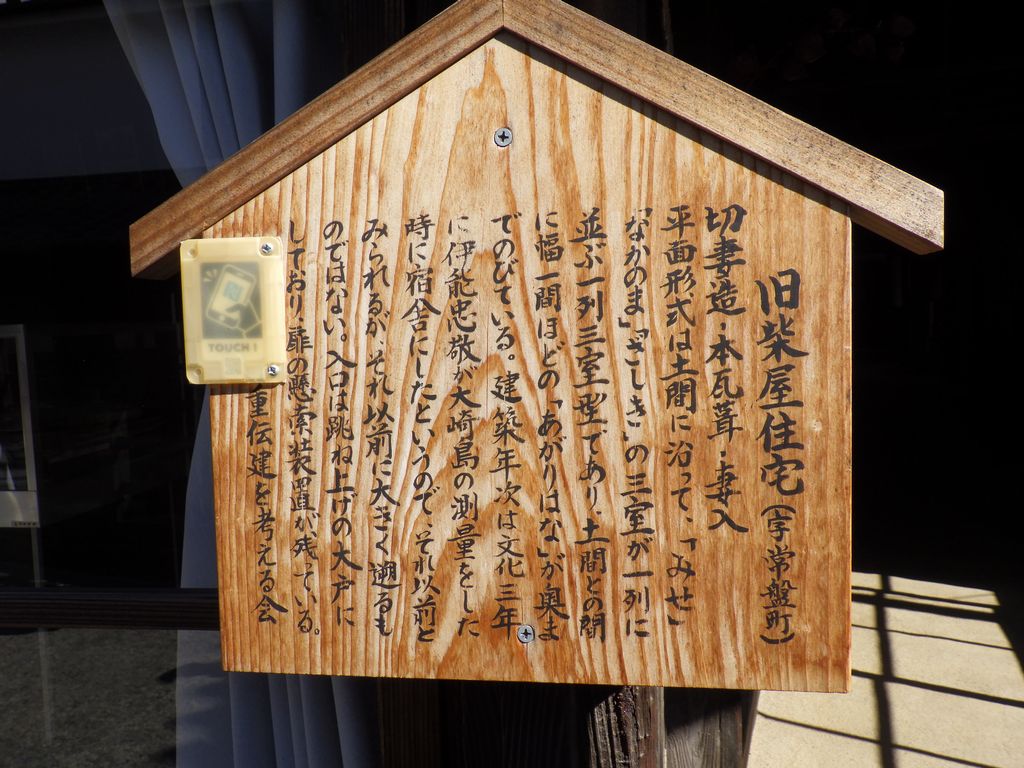 旧柴屋住宅(字常盤町)
切妻造・本瓦葺・妻入
平面形式は土間に沿って、「みせ」
「なかのま」「ざしき」の三室が一列に
並ぶ一列三室型であり、土間との間
に幅一間ほどの「あがりはな」が奥ま
でのびている。建築年次は文化三年
に伊能忠敬が大崎島の測量をした
時に宿舎にしたというので、それ以前と
みられるが、それ以前に大きく遡るも
のではない。入口は跳ね上げの大戸に
しており扉の懸索装置が残っている。
重伝建を考える会
TOUCH!